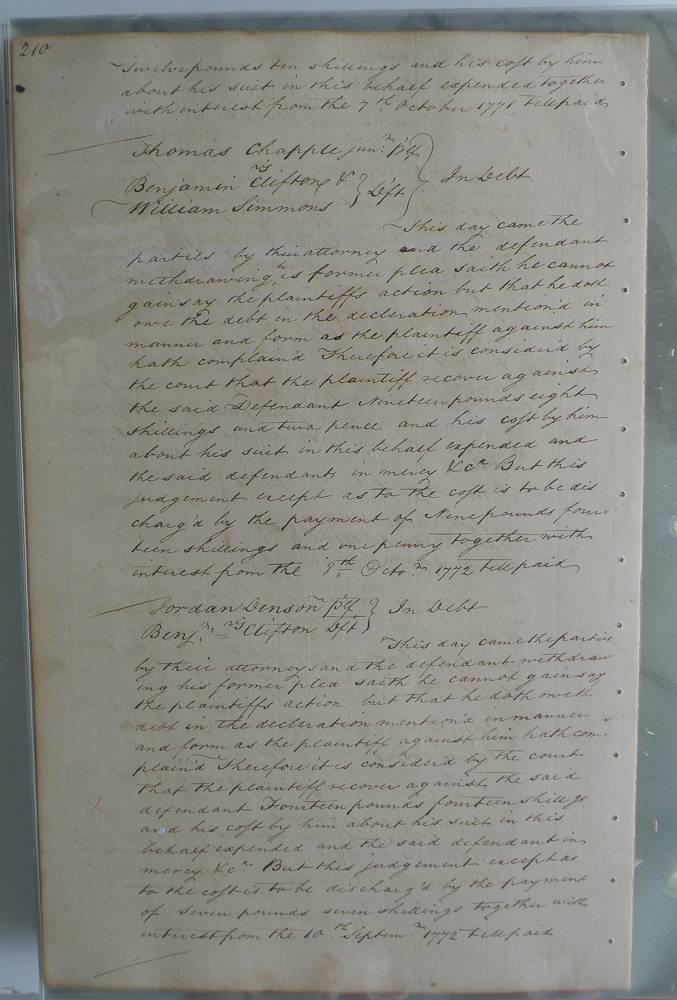 210
Twelve pounds ten shillings and his cost by him
about his suit in this behalf expended together
with interest from the 7th October 1771 till paid
Thomas Chapple junr. ptf
Benjamin Clifton &
William Simmons } Dft } In Debt
This day came the
parties by their attorney and the defendant
withdrawing his former plea saith he cannot
gainsay the plaintiffs action but that he doth
owe the debt in the declaration mention'd in
manner and form as the plaintiff against him
hath complain'd Therefore it is consider'd by
the court that the plaintiff recover against
the said Defendant Nineteen pounds eight
shillings and two pence and his cost by him
about his suit in this behalf expended and
the said defendants in mercy &ca But this
judgement except as to the cost is to be dis
charg'd by the payment of Nine pounds four
teen shillings and one penny together with
interest from the 8th Octor. 1772 till paid
Jordan Denson ptf } In Debt
Benjn. Clifton Dft
This day came the parties
by their attorneys and the defendant withdraw
ing his former plea saith he cannot gainsay
the plaintiffs action but that he doth owe the
debt in the decleration mention'd in manner
and form as the plaintiff against him hath com
plain'd Therefore it is consider'd by the court
that the plaintiff recover against the said
defendant Fourteen pounds fourteen shillgs
and his cost by him about his suit in this
behalf expended and the said defendant in
mercy &ca But this judgement except as
to the cost is to be discharg'd by the payment
of seven pounds seven shillings together with
interest from the 10th Septemr 1772 till paid